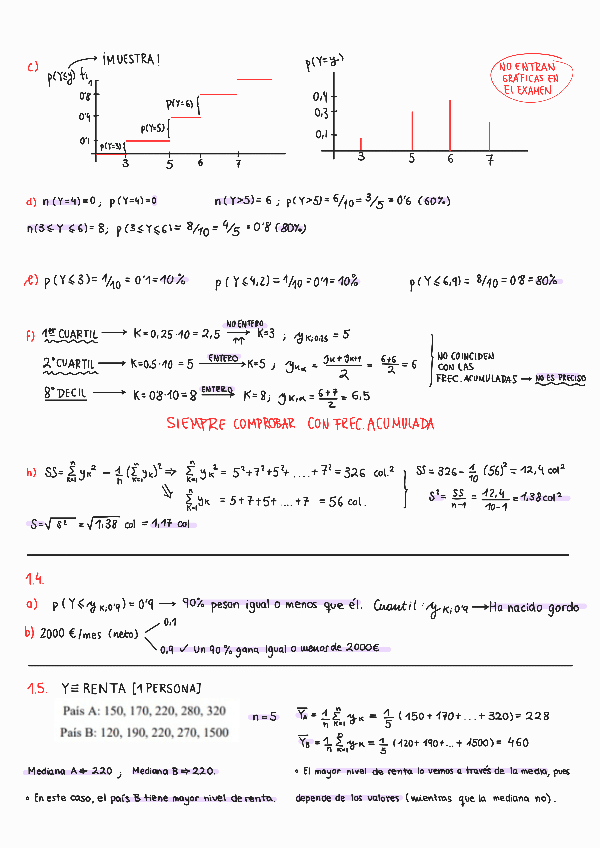 c)
p(Y≤y) fᵢ → ¡MUESTRA!
1
0'8
0'4
0'1
p(Y=3)
p(Y=5)
p(Y=6)
3 5 6 7
p(Y=y)
0,4
0,3
0,1
3 5 6 7
NO ENTRAN
GRÁFICAS EN
EL EXAMEN
d) n(Y=4)=0; p(Y=4)=0 n(Y>5)=6; p(Y>5)=6/10=3/5=0'6 (60%)
n(3≤Y≤6)=8; p(3≤Y≤6)=8/10=4/5=0'8 (80%)
e) p(Y≤3)=1/10=0'1=10% p(Y≤4,2)=1/10=0'1=10% p(Y≤6,9)=8/10=0'8=80%
f) 1er CUARTIL → K=0,25·10=2,5 NO ENTERO → K=3; yK;0,25=5
2º CUARTIL → K=0.5·10=5 ENTERO → K=5; yK;α = (yK+yK+1)/2 = (6+6)/2 = 6
8º DECIL → K=0'8·10=8 ENTERO → K=8; yK;α = (6+7)/2 = 6,5
NO COINCIDEN
CON LAS
FREC. ACUMULADAS → NO ES PRECISO
SIEMPRE COMPROBAR CON FREC. ACUMULADA
h) SS=Σyk² − 1/n (Σyk)² ⇒ Σyk² = 5²+7²+5²+....+7²=326 col.² SS=326−1/10 (56)²=12,4 col²
Σyk = 5+7+5+....+7 = 56 col. S²= SS/n-1 = 12,4/10-1 = 1,38 col²
S=√S² = √1,38 col = 1,17 col
1.4.
a) p(Y≤yK;0'9)=0'9 → 90% pesan igual o menos que él. Cuantil: yK;0,9 → Ha nacido gordo
b) 2000 €/mes (neto)
0,1
0,9 ✓ Un 90% gana igual o menos de 2000€
1.5. Y≡RENTA [1 PERSONA]
País A: 150, 170, 220, 280, 320
País B: 120, 190, 220, 270, 1500
n=5
Y̅A = 1/n Σyk = 1/5 (150+170+...+320)=228
Y̅B = 1/n Σyk = 1/5 (120+190+...+1500)=460
Mediana A ⇒ 220; Mediana B ⇒ 220.
◦ En este caso, el país B tiene mayor nivel de renta.
◦ El mayor nivel de renta lo vemos a través de la media, pues
depende de los valores (mientras que la mediana no).